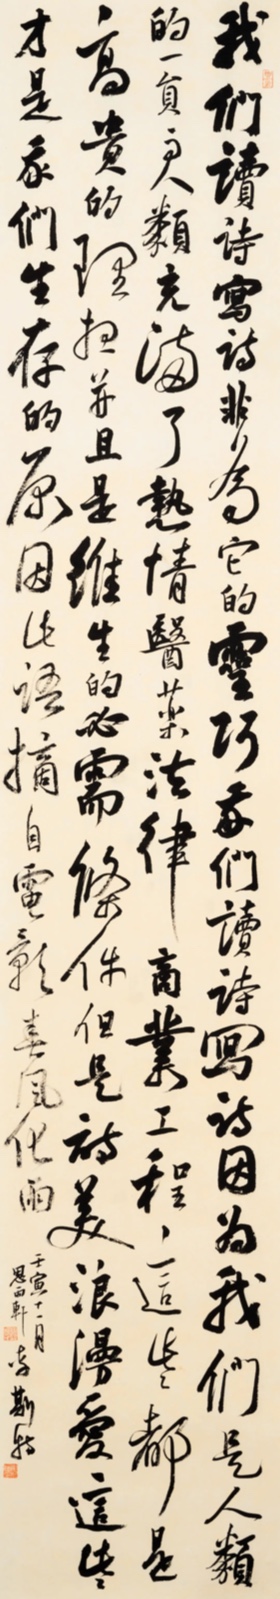 我們讀詩寫詩非為它的靈巧我們讀詩寫詩因为我們是人類
的一員而人類充滿了熱情醫藥法律商業工程、這些都是
高貴的理想并且是維生的必需條件但是詩美浪漫愛這些
才是我們生存的原因此語摘自電影春風化雨
壬寅十一月李斯特